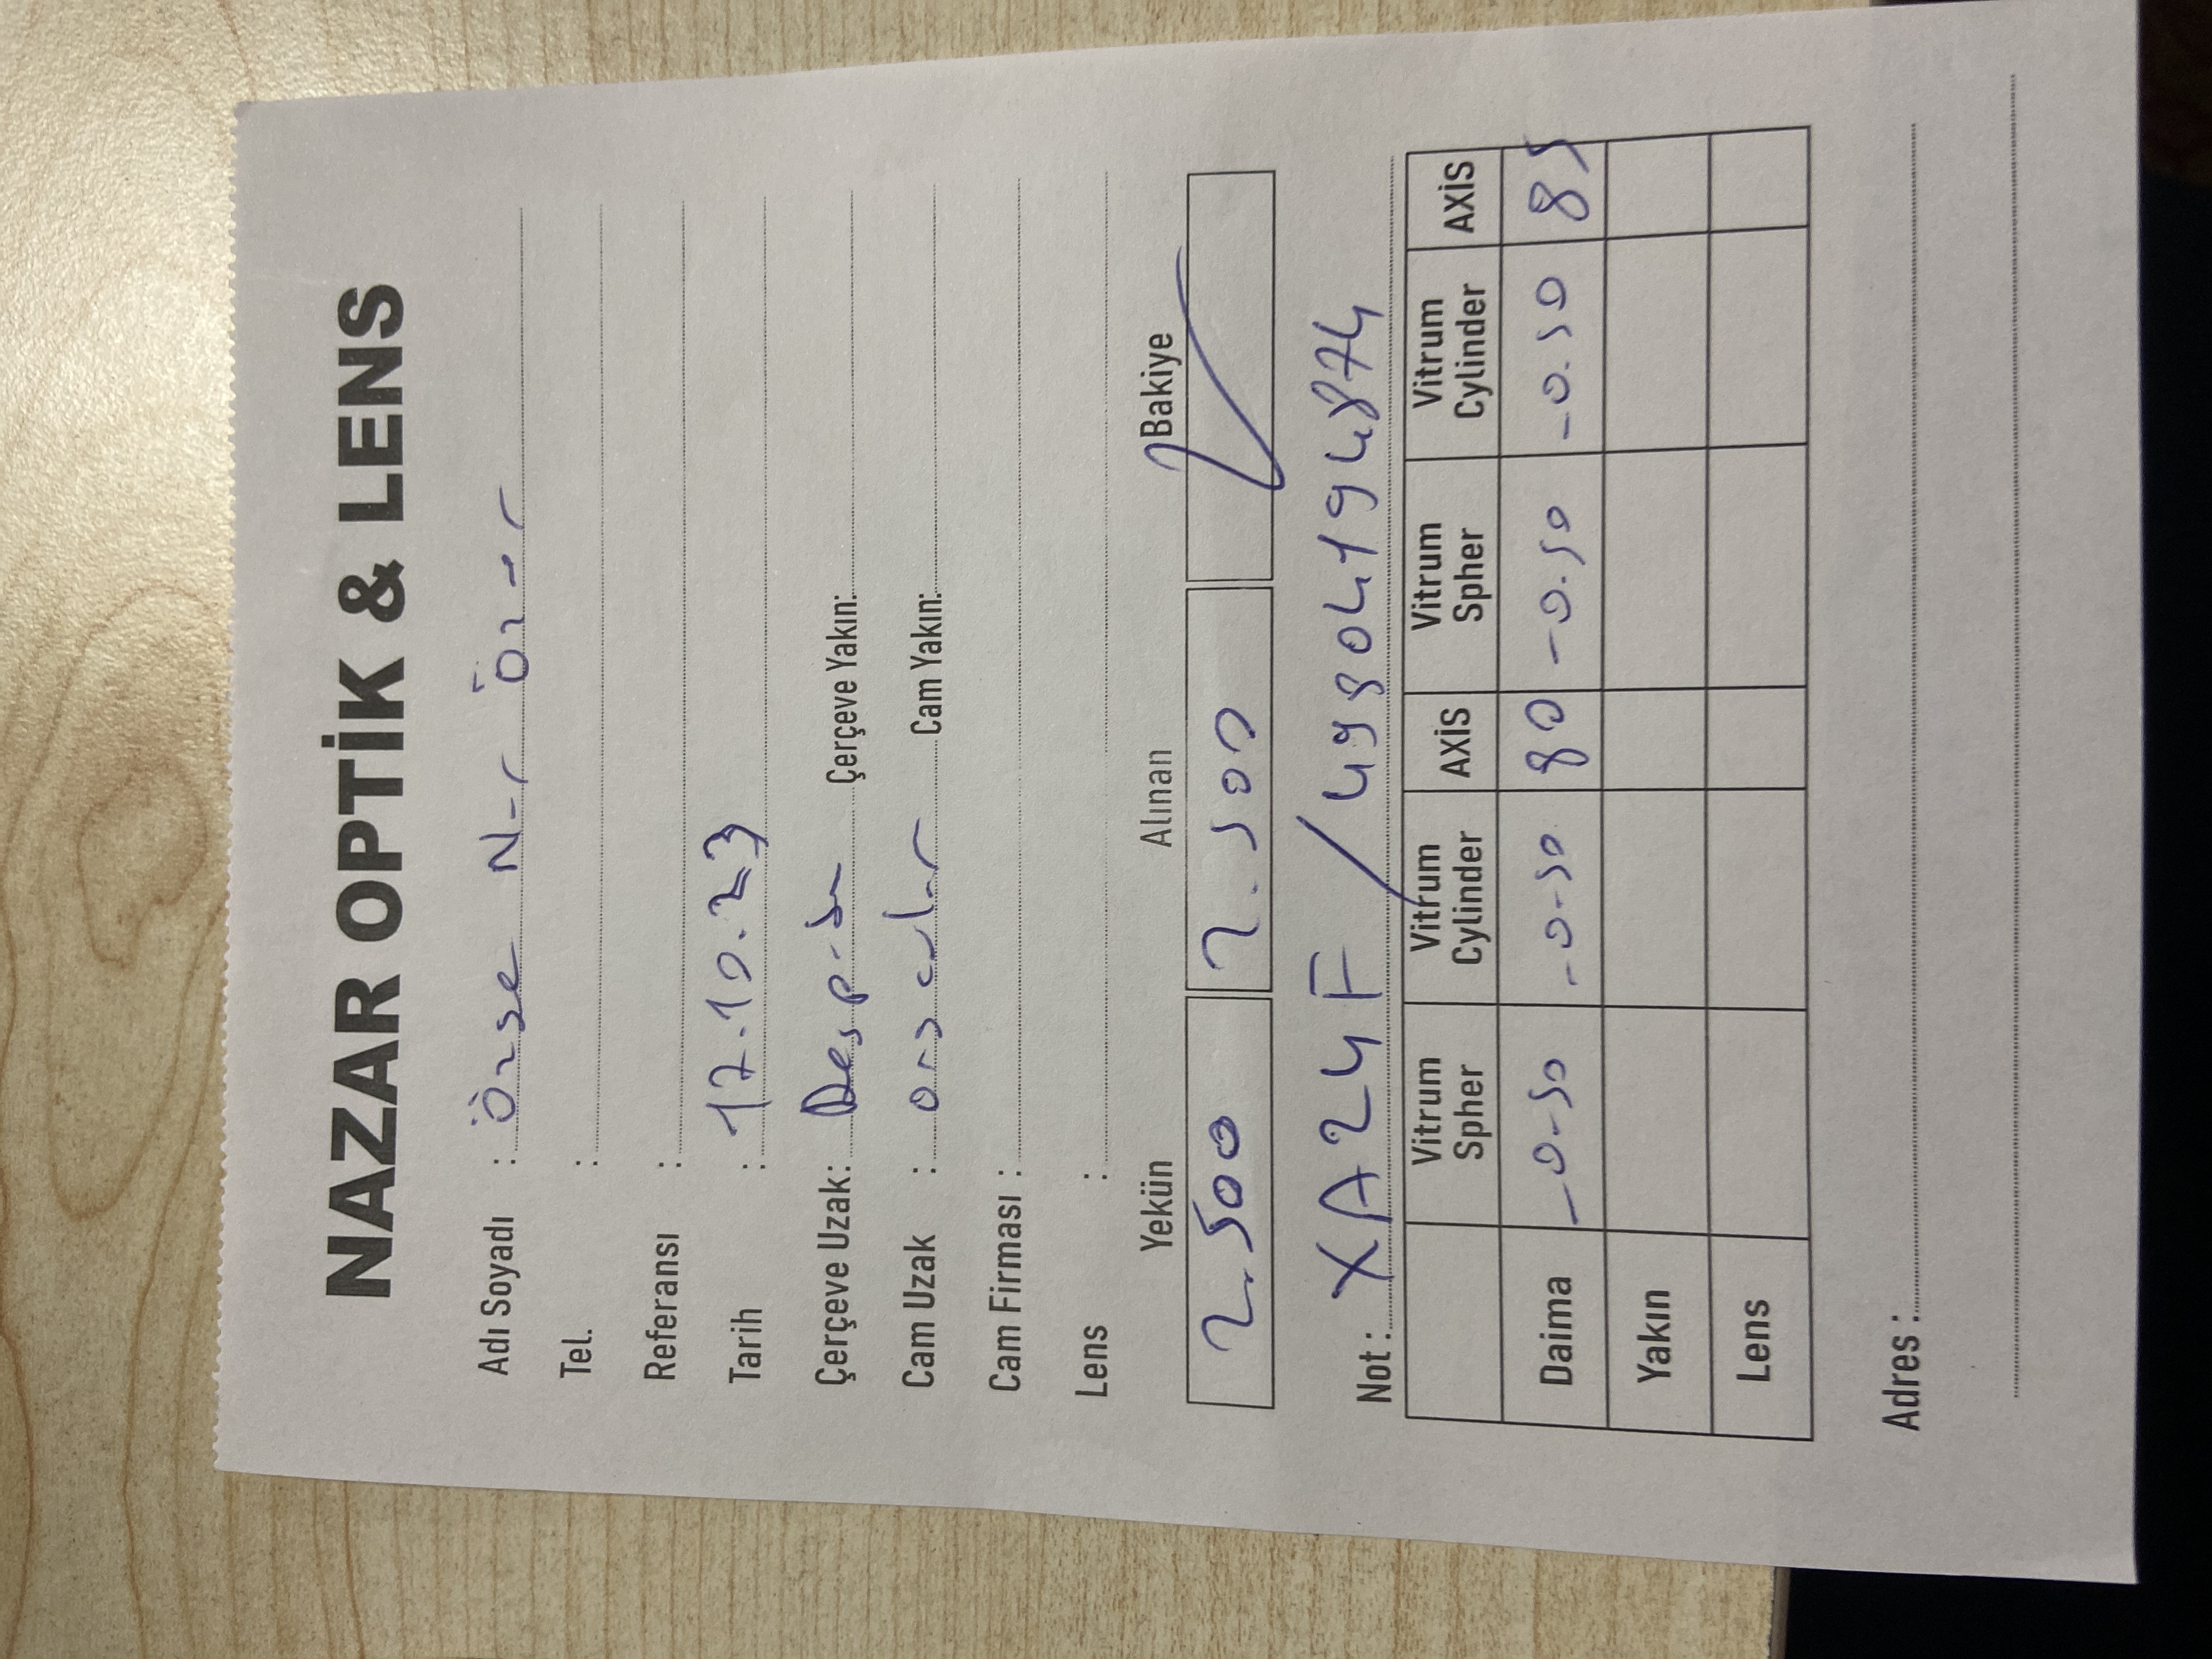 NAZAR OPTİK & LENS
Adı Soyadı : Özge Nur
Tel. :
Referansı :
Tarih : 17.10.23
Çerçeve Uzak: Çerçeve Yakın:
Cam Uzak : Cam Yakın:
Cam Firması :
Lens :
Yekün Alınan Bakiye
2.500 2.500
Not : XA24F / 49804194874
Vitrum Spher Vitrum Cylinder AXİS Vitrum Spher Vitrum Cylinder AXİS
Daima -0.50 -0.50 80 -0.50 -0.50 85
Yakın
Lens
Adres :